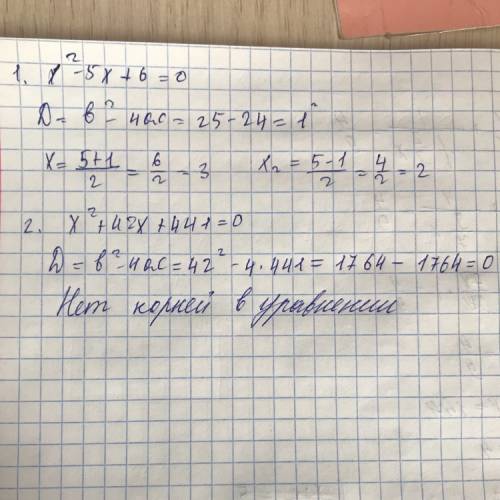 1. x² - 5x + 6 = 0
D = b² - 4ac = 25 - 24 = 1²
x = 5+1/2 = 6/2 = 3 x₂ = 5-1/2 = 4/2 = 2
2. x² + 42x + 441 = 0
D = b² - 4ac = 42² - 4·441 = 1764 - 1764 = 0
Нет корней в уравнении